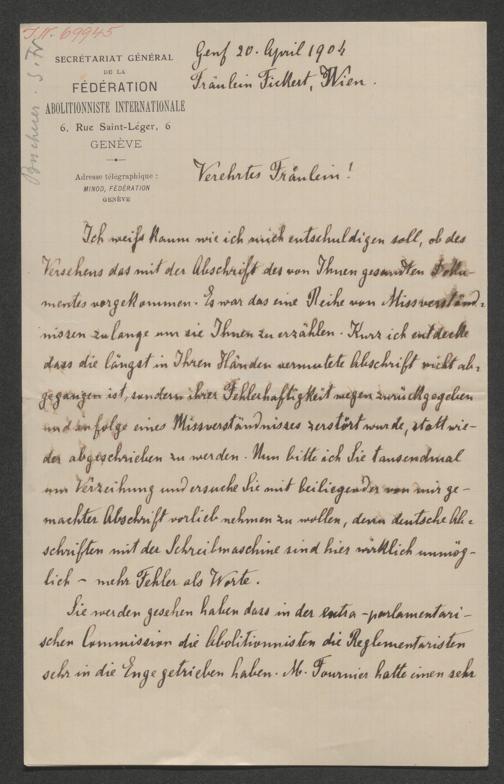 J.N. 69945
SECRÉTARIAT GÉNÉRAL
DE LA
FÉDÉRATION
ABOLITIONNISTE INTERNATIONALE
6, Rue Saint-Léger, 6
GENÈVE
Adresse télégraphique :
MINOD, FÉDÉRATION
GENÈVE
Genf 20. April 1904
Fräulein Fickert, Wien.
Verehrtes Fräulein!
Ich weiß kaum wie ich mich entschuldigen soll, ob des
Versehens das mit der Abschrift des von Ihnen gesandten Doku-
mentes vorgekommen. Es war das eine Reihe von Missverständ-
nissen zulange um sie Ihnen zu erzählen. Kurz ich entdeckte
dass die längst in Ihren Händen vermutete Abschrift nicht ab-
gegangen ist, sondern ihrer Fehlerhaftigkeit wegen zurückgegeben
und zufolge eines Missverständnisses zerstört wurde, statt wie-
der abgeschrieben zu werden. Nun bitte ich Sie tausendmal
um Verzeihung und ersuche Sie mit beiliegender von mir ge-
machter Abschrift vorlieb nehmen zu wollen, denn deutsche Ab-
schriften mit der Schreibmaschine sind hier wirklich unmög-
lich – mehr Fehler als Worte.
Sie werden gesehen haben dass in der extra-parlamentari-
schen Commission die Abolitionnisten die Reglementaristen
sehr in die Enge getrieben haben. M. Fournier hatte einen sehr